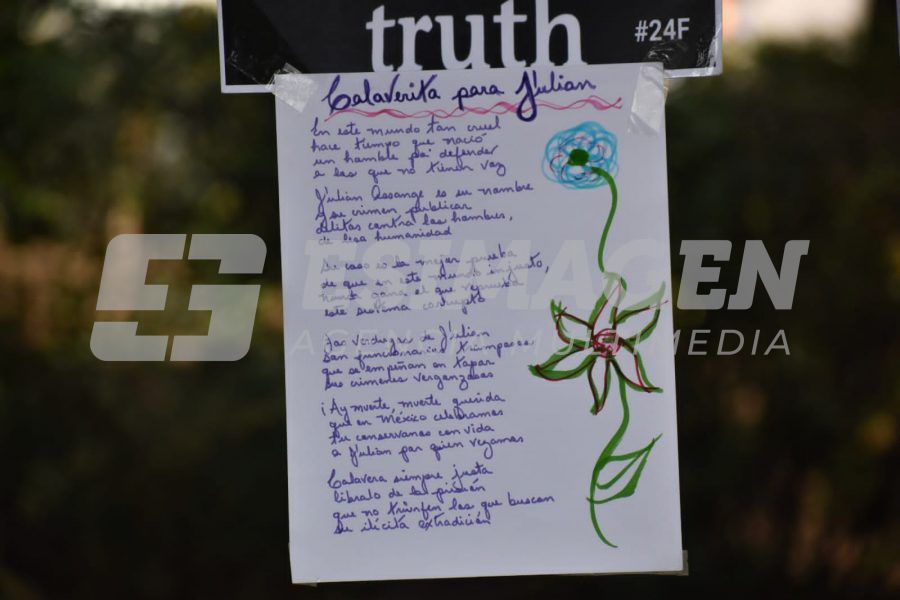 truth
#24F
Calaverita para Julian
En este mundo tan cruel
hace tiempo que nació
un hombre pa' defender
a los que no tienen voz
Julian Assange es su nombre
y su crimen publicar
delitos contra los hombres,
de lesa humanidad
Su caso es la mejor prueba
de que en este mundo injusto,
nunca gana el que
este sistema corrupto
Los verdugos de Julian
son funcionarios tramposos
que se empeñan en tapar
sus crimenes vergonzosos
¡Ay muerte, muerte querida
que en México celebramos
tu conservanos con vida
a Julian por quien rezamos
Calavera siempre justa
libralo de la prisión
que no triunfen los que buscan
su ilícita extradición
ESIMAGEN
AGENCIA MULTIMEDIA